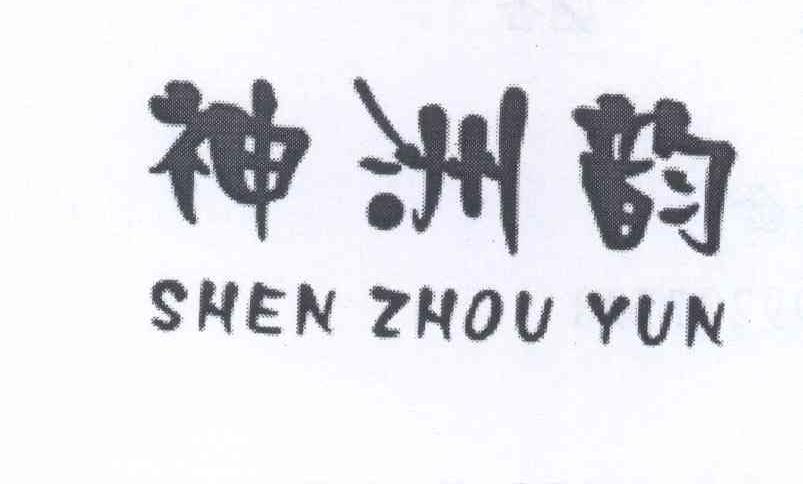 神洲韵
SHEN ZHOU YUN